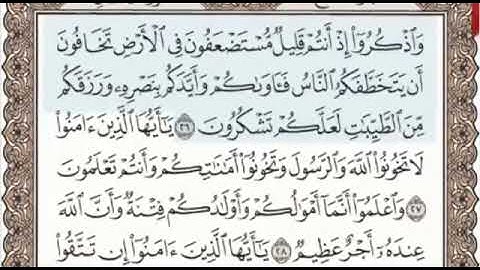 وَاذْكُرُوا إِذْ أَنتُمْ قَلِيلٌ مُّسْتَضْعَفُونَ فِي الْأَرْضِ تَخَافُونَ
أَن يَتَخَطَّفَكُمُ النَّاسُ فَآوَىٰكُمْ وَأَيَّدَكُم بِنَصْرِهِ وَرَزَقَكُم
مِّنَ الطَّيِّبَٰتِ لَعَلَّكُمْ تَشْكُرُونَ ٢٦ يَٰٓأَيُّهَا الَّذِينَ ءَامَنُوا
لَا تَخُونُوا اللَّهَ وَالرَّسُولَ وَتَخُونُوا أَمَٰنَٰتِكُمْ وَأَنتُمْ تَعْلَمُونَ
٢٧ وَاعْلَمُوا أَنَّمَا أَمْوَٰلُكُمْ وَأَوْلَٰدُكُمْ فِتْنَةٌ وَأَنَّ اللَّهَ
عِندَهُ أَجْرٌ عَظِيمٌ ٢٨ يَٰٓأَيُّهَا الَّذِينَ ءَامَنُوا إِن تَتَّقُوا